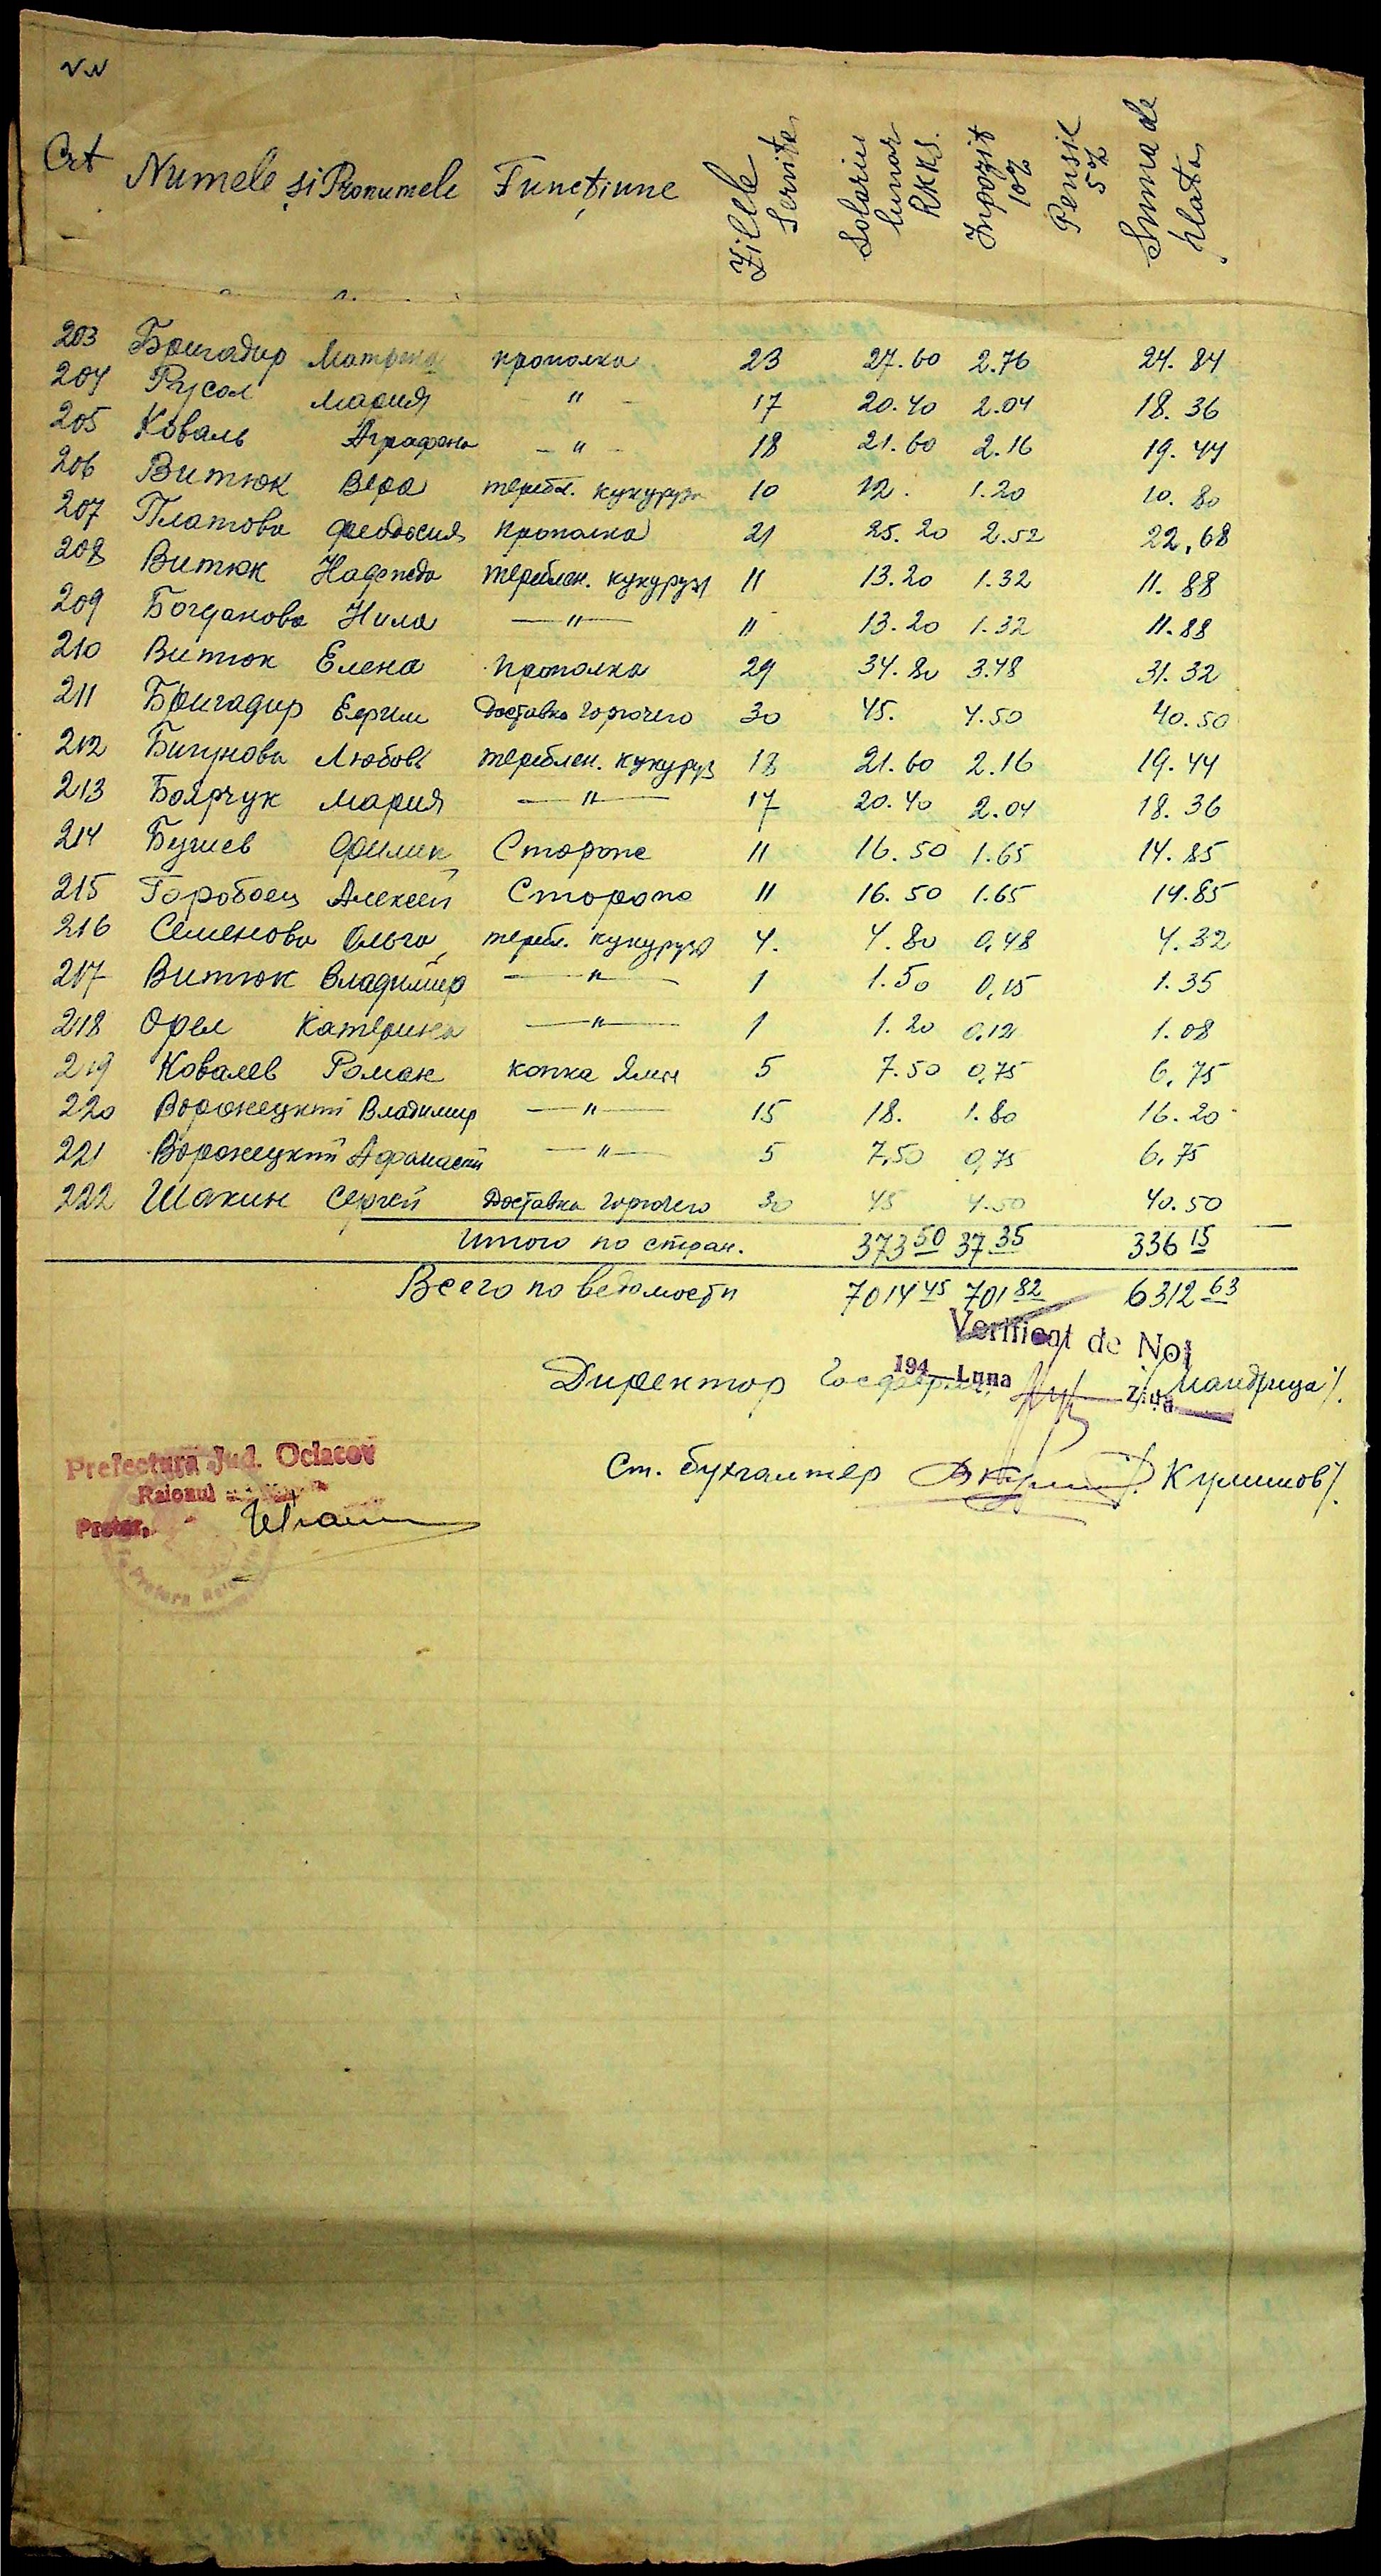 NN
Crt Numele și Pronumele Funcțiune Zilele Servite Solariu lunar RKKS. Inpozit 10% Pensie 5% Suma de plata
203 Бригадир Матрена прополка 23 27.60 2.76 24.84
204 Русол Мария — " — 17 20.40 2.04 18.36
205 Коваль Аграфена — " — 18 21.60 2.16 19.44
206 Витюк Вера тереб. кукурузы 10 12. 1.20 10.80
207 Платова Феодосия прополка 21 25.20 2.52 22,68
208 Витюк Надежда тереблен. кукуруз 11 13.20 1.32 11.88
209 Богданова Нила — " — 11 13.20 1.32 11.88
210 Витюк Елена прополка 29 34.80 3.48 31.32
211 Бригадир Ефим Доставка горючего 30 45. 4.50 40.50
212 Бигунова Любовь тереблен. кукуруз 18 21.60 2.16 19.44
213 Боярчук Мария — " — 17 20.40 2.04 18.36
214 Бугаев Филип Сторож 11 16.50 1.65 14.85
215 Горобец Алексей Сторож 11 16.50 1.65 14.85
216 Семенова Ольга тереб. кукуруз 4. 4.80 0,48 4.32
217 Витюк Владимир — " — 1 1.50 0,15 1.35
218 Орел Катерина — " — 1 1.20 0,12 1.08
219 Ковалев Роман копка Ямы 5 7.50 0,75 6,75
220 Воронецкий Владимир — " — 15 18. 1.80 16.20
221 Воронецкий Афанасий — " — 5 7,50 0,75 6,75
222 Шакин Сергей Доставка горючего 30 45 4.50 40.50
Итого по стран. 373 50 37 35 336 15
Всего по ведомости 7014 45 701 82 6312 63
Verificat de Noi
194 Luna Ziua
Директор Госфермы /Мандрица/.
Prefectura Jud. Oclacov
Raionul
Pretor,
Ст. бухгалтер /Куликов/.